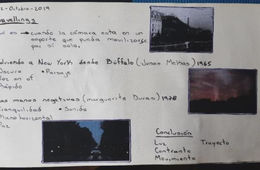 2-Octubre-2019
Travellings
es • cuando la cámara esta en un
soporte que pueda movilizarse
por si sola.
Volviendo a New York desde Búffalo (Jonas Mekas) 1965
Oscuro • Paisaje
en el
Rápido
Las manos negativas (marguerite Duras) 1978
Tranquilidad • Sonido
Plano horizontal
Conclusión
Luz Trayecto
Contraste
Movimiento